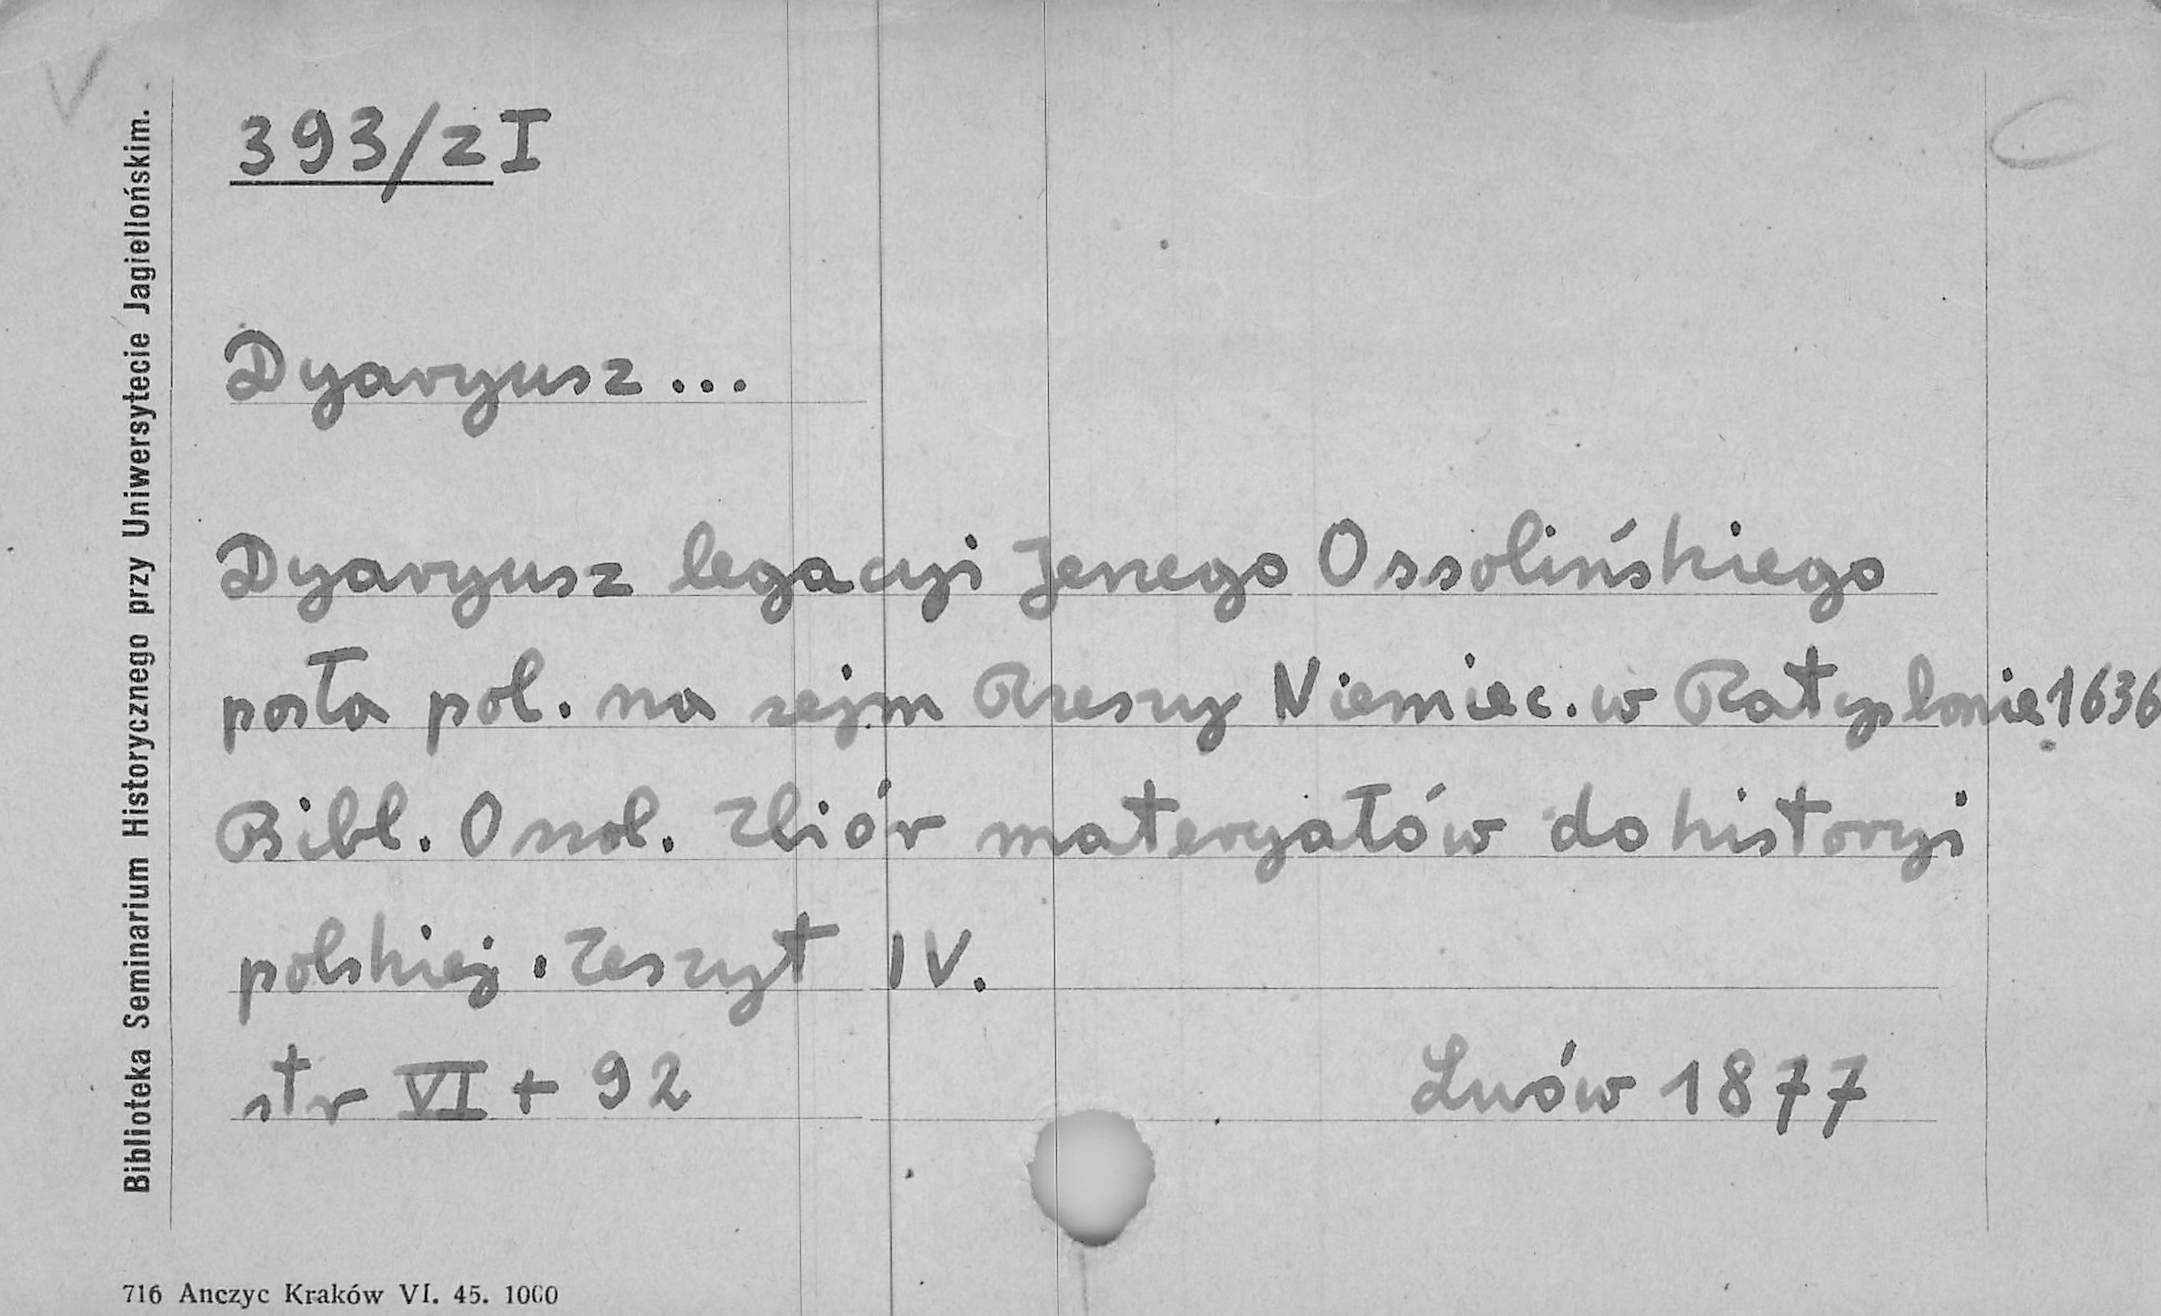 393/z I
Dyaryusz...
Dyaryusz legacyi Jerzego Ossolińskiego
posła pol. na sejm Rzeszy Niemiec. w Ratysbonie 1636
Bibl. Ossol. Zbiór materyałów do historyi
polskiej. Zeszyt IV.
str VI + 92 Lwów 1877
Biblioteka Seminarium Historycznego przy Uniwersytecie Jagiellońskim.
716 Anczyc Kraków VI. 45. 1000